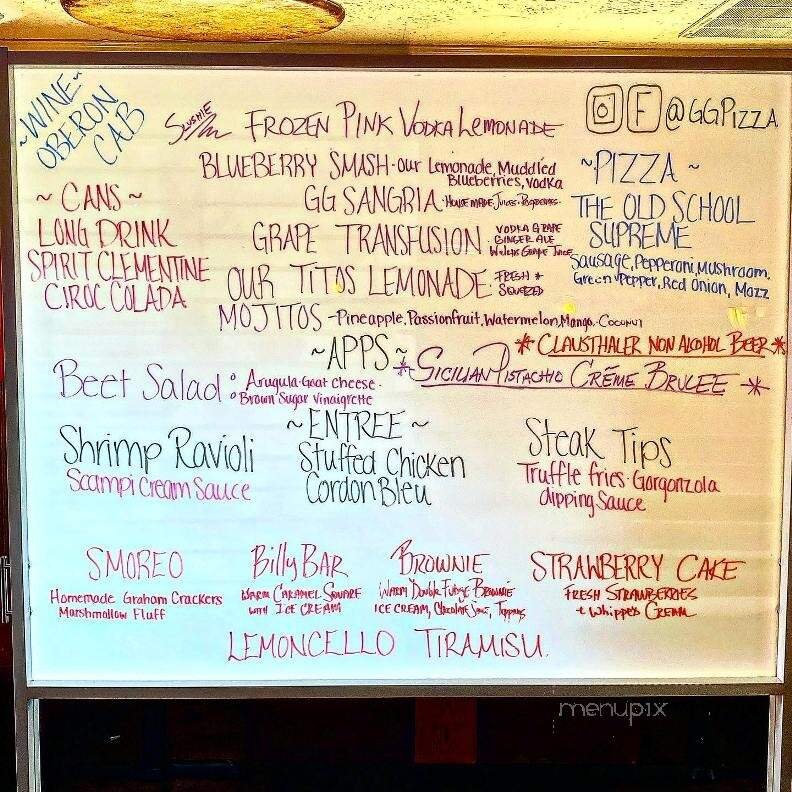 ~WINE~
OBERON
CAB
SLUSHIE FROZEN PINK VODKA LEMONADE
F @GGPIZZA
BLUEBERRY SMASH-our Lemonade, Muddled
Blueberries, Vodka
GG SANGRIA-HOUSE MADE, Juices
GRAPE TRANSFUSION VODKA GRAPE
GINGER ALE
Welch's Grape Juice
OUR TITOS LEMONADE-FRESH +
SQUEEZED
MOJITOS-Pineapple, Passionfruit, Watermelon, Mango, Coconut
~CANS~
LONG DRINK
SPIRIT CLEMENTINE
CIROC COLADA
~PIZZA~
THE OLD SCHOOL
SUPREME
Sausage, Pepperoni, Mushroom,
Green Pepper, Red Onion, Mozz
*CLAUSTHALER NON ALCOHOL BEER*
~APPS~
*SICILIAN PISTACHIO CRÉME BRULEE*
Beet Salad: Arugula-Goat cheese-
Brown Sugar Vinaigrette
~ENTREE~
Shrimp Ravioli
Scampi Cream Sauce
Stuffed Chicken
Cordon Bleu
Steak Tips
Truffle fries-Gorgonzola
dipping Sauce
SMOREO
Homemade Graham Crackers
Marshmallow Fluff
Billy BAR
WARM CARAMEL SQUARE
WITH ICE CREAM
BROWNIE
WARM Double Fudge BROWNIE
ICE CREAM, Chocolate Sauce, Topping
STRAWBERRY CAKE
FRESH STRAWBERRIES
+ Whipped CREAM
LEMONCELLO TIRAMISU.
menupix